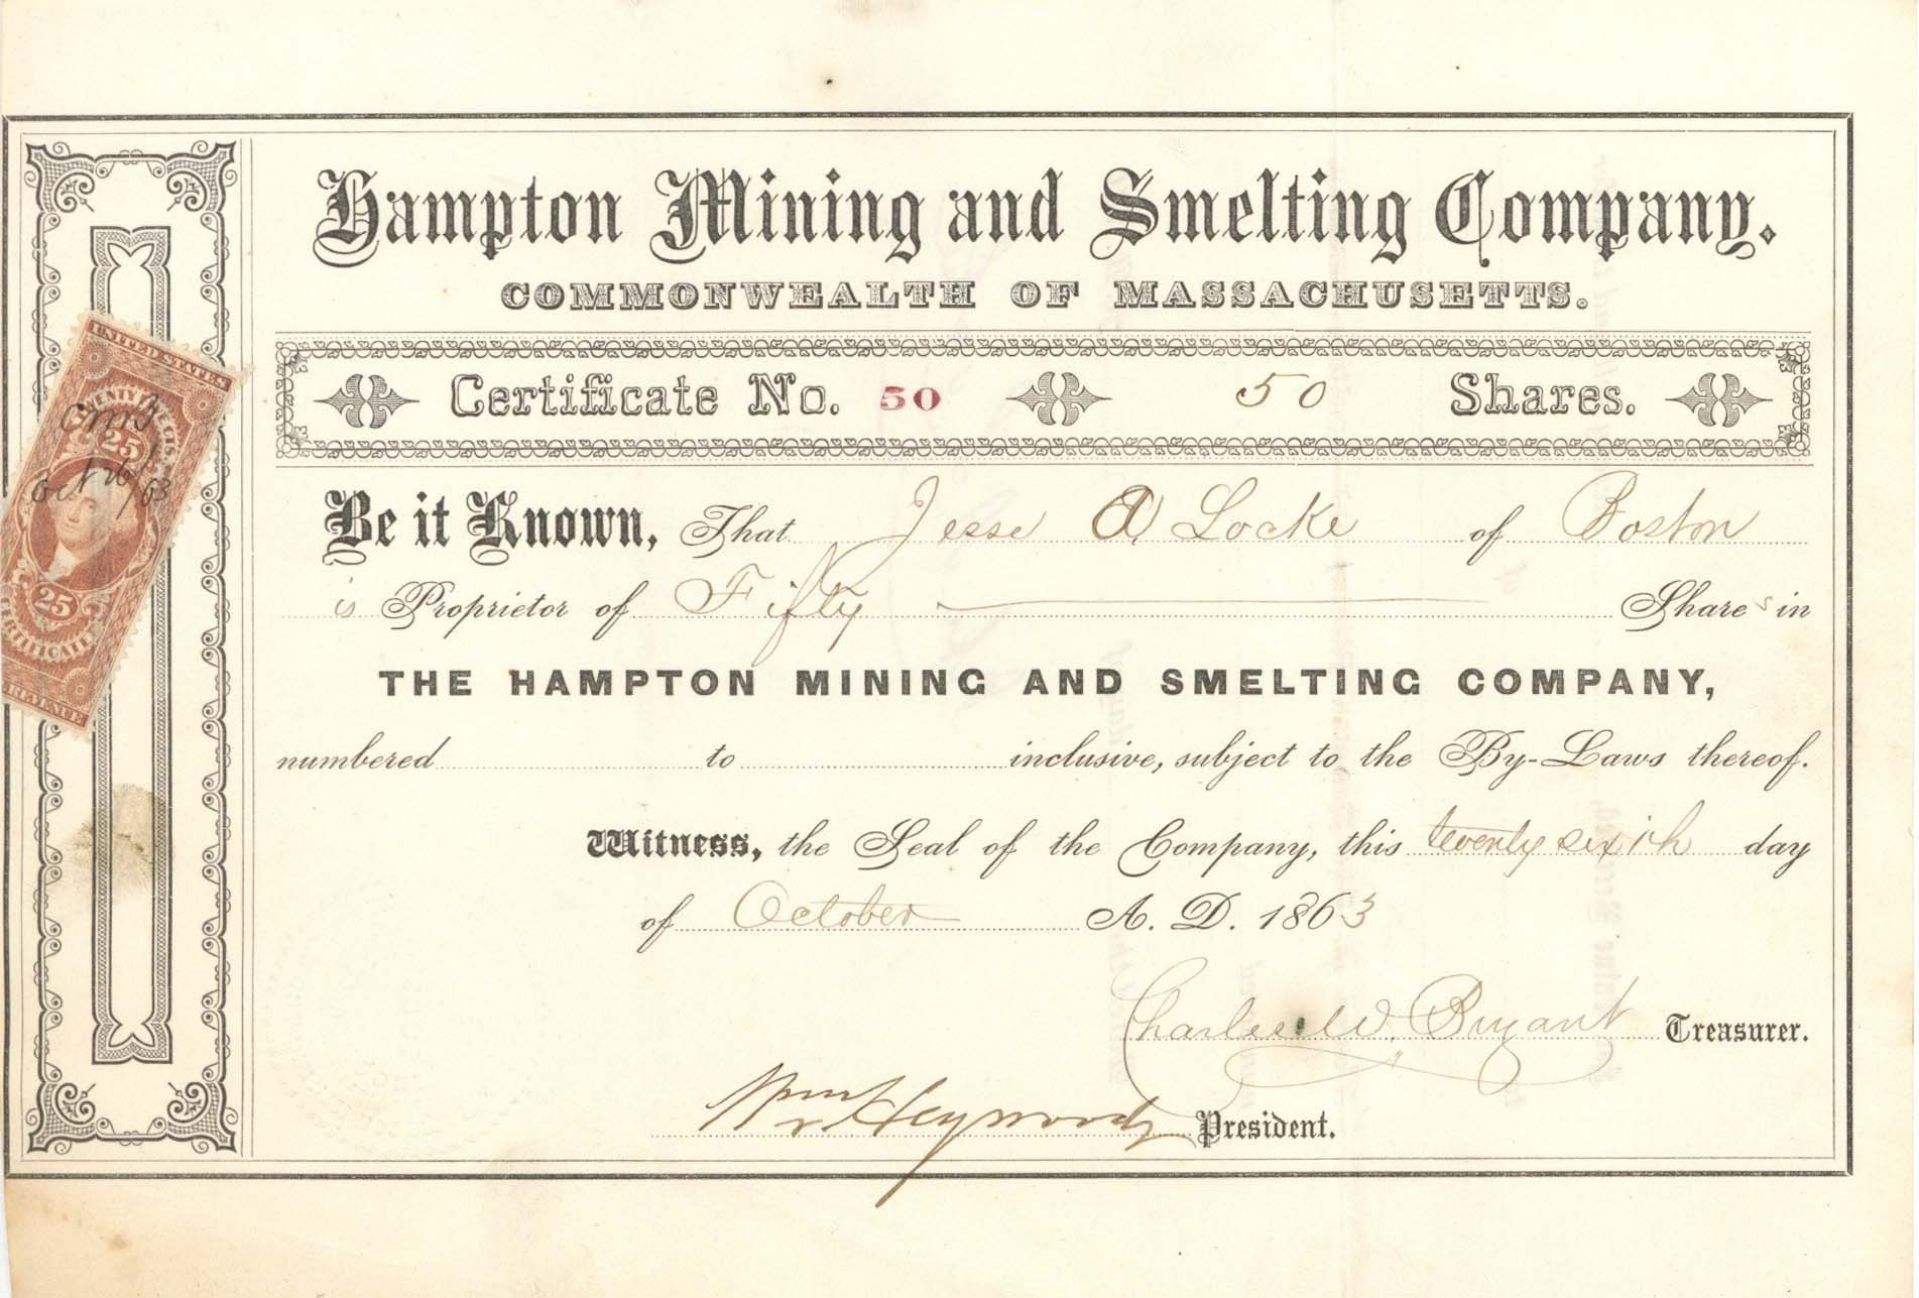 Hampton Mining and Smelting Company.
COMMONWEALTH OF MASSACHUSETTS.
Certificate No. 50 50 Shares.
Be it Known, That Jesse A. Locke of Boston
is Proprietor of Fifty Shares in
THE HAMPTON MINING AND SMELTING COMPANY,
numbered to inclusive, subject to the By-Laws thereof.
Witness, the Seal of the Company, this twenty sixth day
of October A. D. 1863
Charles W. Bryant Treasurer.
Heywood President.
UNITED STATES
TWENTY FIVE CTS.
25
Oct 26/63
25
CERTIFICATE
REVENUE